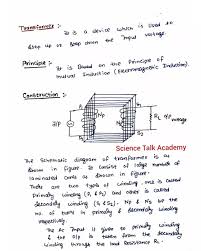 Transformer :-
It is a device which is used to
step up or step down the Input voltage.
Principle :-
It is Based on the Principle of
mutual Induction (Electromagnetic Induction).
Construction :-
I/P
N/P
RL O/P
voltage
Science Talk Academy
The Schematic diagram of transformer is as
shown in figure. It consist of large number of
laminated cores as shown in figure.
There are two types of winding, one is called
primary winding (P1 & P2) and other is called
secondary winding (S1 & S2). Np & Ns be the
no. of turns in primary & secondary winding
respectively.
The AC Input is given to primary winding
& the O/P is taken from the secondary
winding through the load Resistance RL.